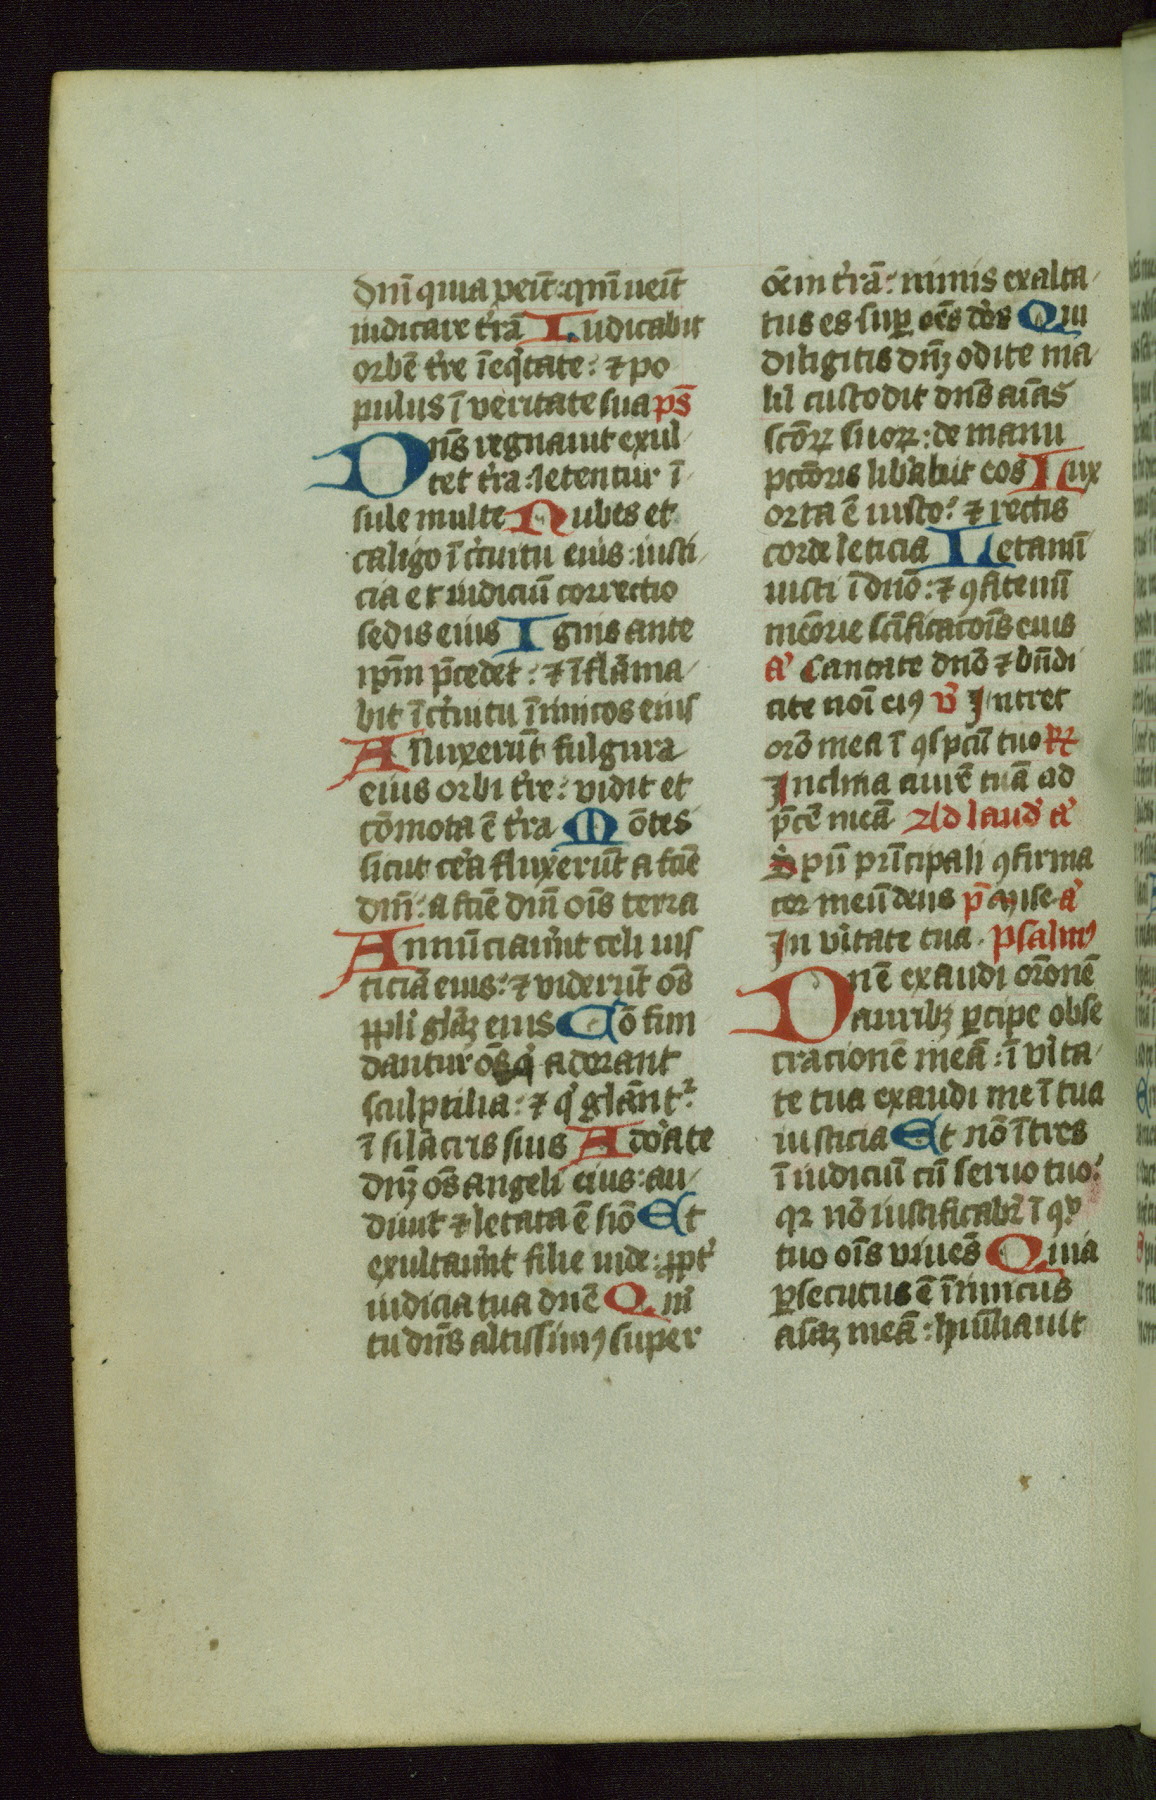 dnī quia veīt: qm̄ ueīt
iudicare t̓rā Iudicabit
orbē t̓re ī eq̓tate: ⁊ po
pulus ī veritate sua ps̄
Dn̄s regnauit exul
tet t̓ra: letentur ī
sule multe Nubes et
caligo ī c̓cuitu eius: iusti
cia et iudiciū correctio
sedis eius Ignis ante
ip̄m p̄cedet: ⁊ īflāma
bit ī c̓cuitu īimicos eius
Alluxerūt fulgura
eius orbi t̓re: vidit et
cōmota ē t̓ra Mōtes
sicut ce̓a fluxerūt a fcīe
dnī: a fcīe dnī oīs terra
Annūciauer̄t celi ius
ticiā eius: ⁊ viderūt oēs
ppl̓i gl̓aꝫ eius Cōfun
dantur oēs q̓ adorant
sculptilia: ⁊ q̓ gl̓ānt᷑
ī sil̓acris suis Ado̓ate
dnꝫ oēs angeli eius: au
diuit ⁊ letata ē siō Et
exultauer̄t filie iude: ꝓpt̓
iudicia tua dnē Qm̄
tu dn̄s altissimꝰ super
oēm t̓rā: nimis exalta
tus es suꝑ oēs de̓os Qui
diligitis dn̄ꝫ odite ma
lū custodit dn̄s aīas
scōꝝ suoꝝ: de manu
pcc̄oris lib̓abit eos Lux
orta ē iusto: ⁊ rectis
corde leticia Letamī
iusti ī dnō: ⁊ ꝯfitemī
memōrie sc̄ificacoīs eius
a̓ Cantate dnō ⁊ bn̄di
cite noī eiꝰ v̓ Intret
orō mea ī ꝯspcū tuo R̓
Inclina aurē tuā ad
p̄cē meā Ad laud̓ a̓
Spū prīcipali ꝯfirma
cor meū deus p̄s Mise a̓
In vi̓tate tua. Psalmꝰ
Dnē exaudi or̄onē
auribꝫ ꝑcipe obse
cracionē meā: ī vi̓ta
te tua exaudi me ī tua
iusticia Et nō ītres
ī iudiciū cū seruo tuo:
qꝛ nō iustificab̓r ī ꝯsp̓
tuo oīs viuēs Quia
ꝑsecutus ē īimicus
aīaꝫ meā: humiliauit